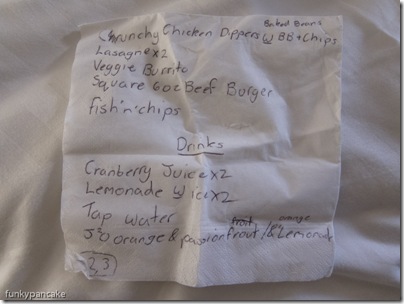 Baked Beans
Crunchy Chicken Dippers W BB + Chips
Lasagne x2
Veggie Burrito
Square 60c Beef Burger
fish 'n' chips
Drinks
Cranberry Juice x2
Lemonade W ice x2
Tap water
fruit orange
J2O orange & passion frout / & Lemonade
23
funkypancake